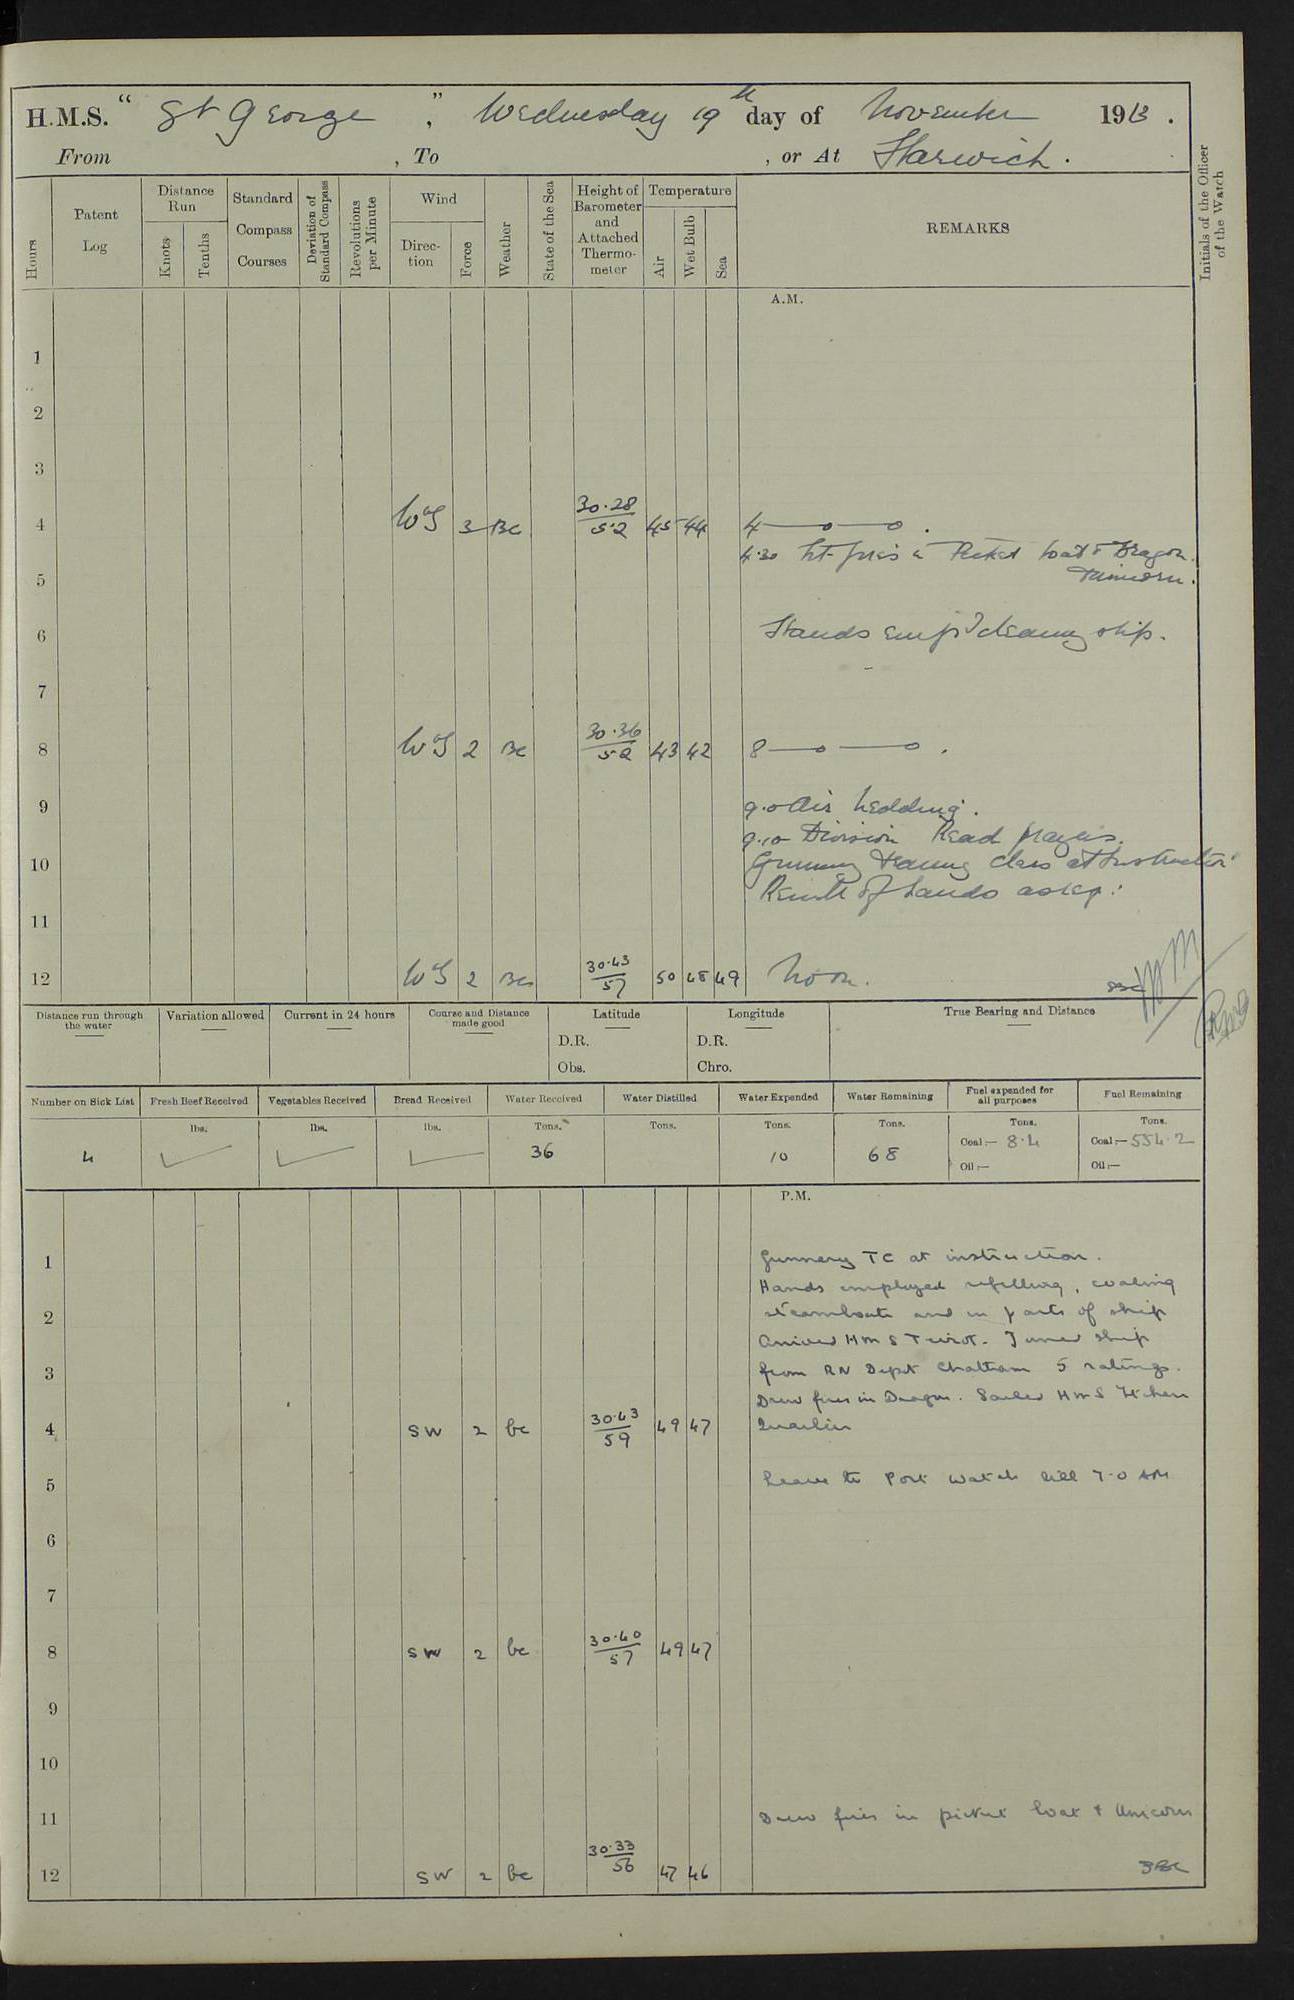 H.M.S. "St George", Wednesday 19th day of November 1913.
From , To , or At Harwich.
Hours
Patent Log
Distance Run
Knots
Tenths
Standard Compass Courses
Deviation of Standard Compass
Revolutions per Minute
Wind
Direction
Force
Weather
State of the Sea
Height of Barometer and Attached Thermometer
Temperature
Air
Wet Bulb
Sea
REMARKS
Initials of the Officer of the Watch
A.M.
1
2
3
4 WS 3 Bc 30.28/52 45 44 4
4.30 Lt. fires in Picket boat & Dragon.
5
6 Hands emp'd cleaning ship.
7
8 WS 2 Bc 30.36/52 43 42 8
9 9.0 Air bedding.
9.10 Division Read prayers.
10 Gunnery Training Class at Instruction
Remdr of hands as req:
11
12 WS 2 Bc 30.43/57 50 48 49 Noon.
Distance run through the water
Variation allowed
Current in 24 hours
Course and Distance made good
Latitude
D.R.
Obs.
Longitude
D.R.
Chro.
True Bearing and Distance
Number on Sick List
Fresh Beef Received
Vegetables Received
Bread Received
Water Received
Water Distilled
Water Expended
Water Remaining
Fuel expended for all purposes
Fuel Remaining
lbs. lbs. lbs. Tons. Tons. Tons. Tons. Tons. Tons.
4 36 10 68 Coal:— 8.4 Coal:— 554.2
Oil:— Oil:—
P.M.
1 Gunnery TC at instruction.
Hands employed refilling, coaling
2 steamboats and in parts of ship
Arrived HMS Teviot. Joined ship
3 from RN Depot Chatham 5 ratings.
Drew fires in Dragon. Sailed HMS Itchen
4 SW 2 bc 30.43/59 49 47
5 Leave to Port Watch till 7.0 AM
6
7
8 SW 2 bc 30.40/57 49 47
9
10
11 Drew fires in picket boat & Unicorn
12 SW 2 bc 30.33/56 47 46